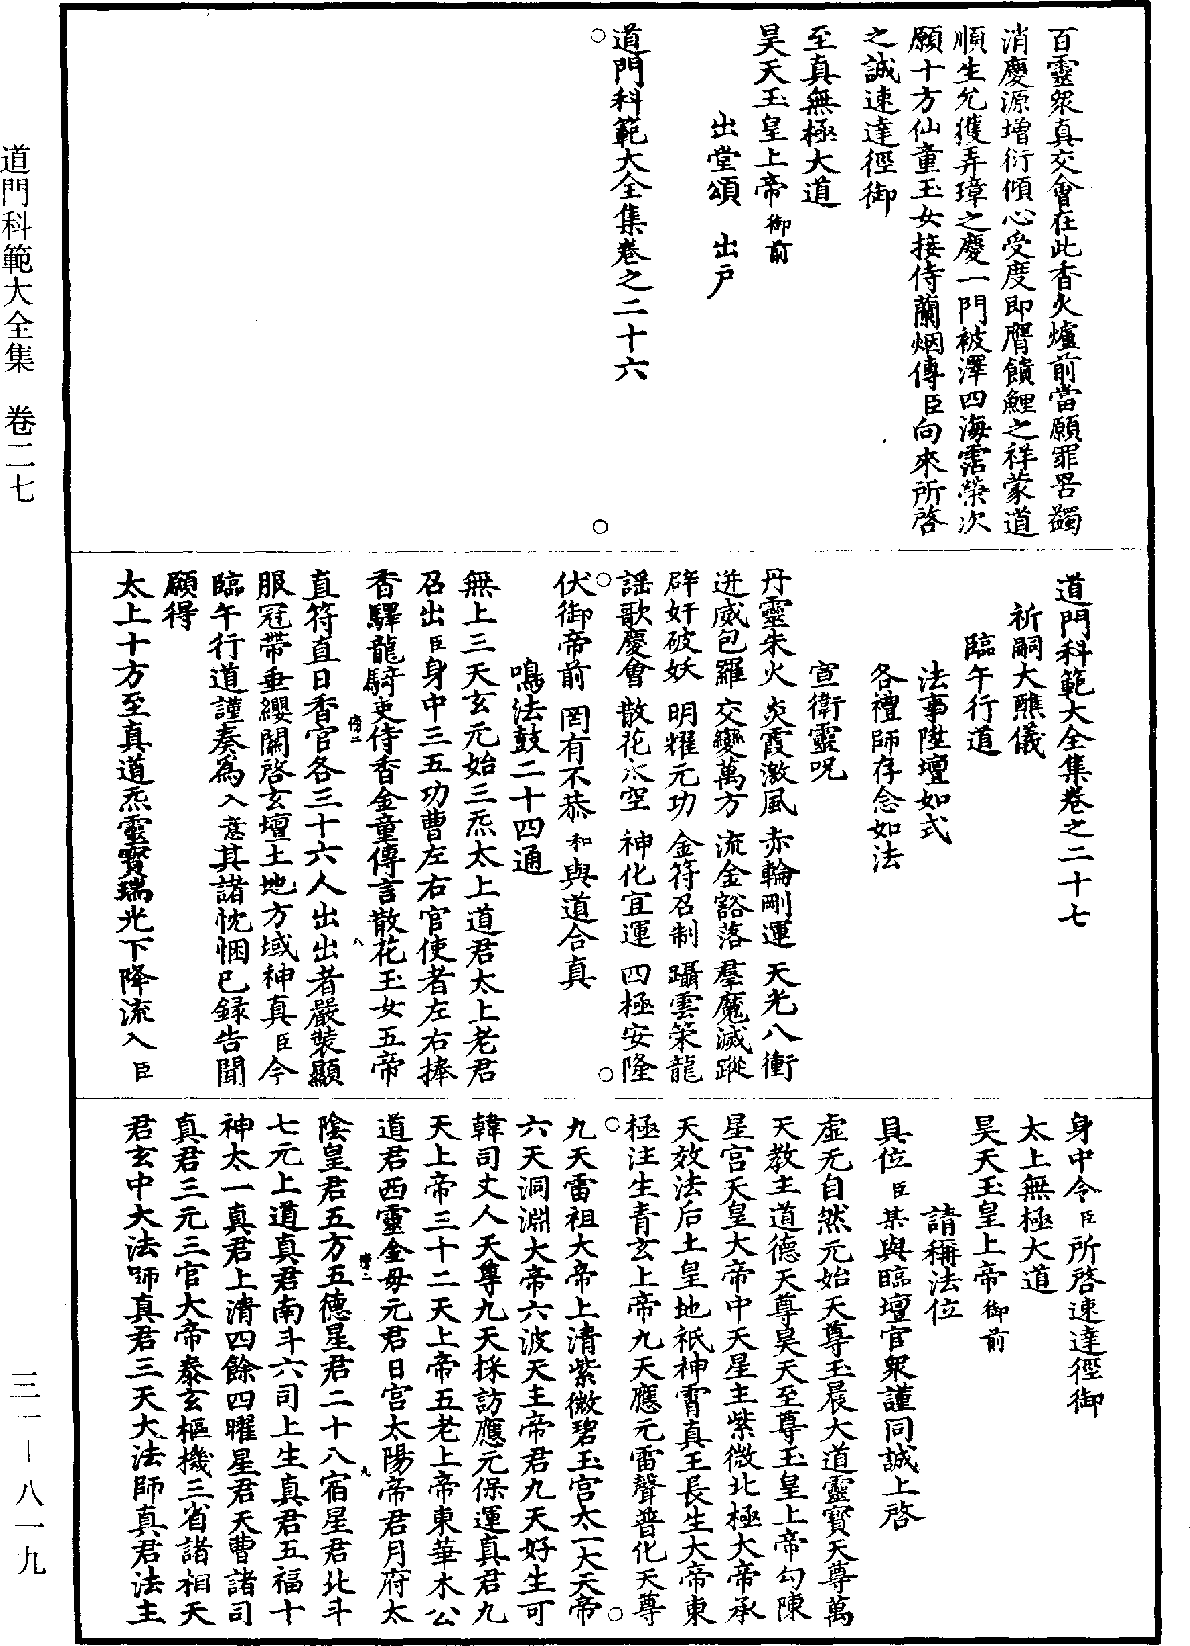 百靈眾真交會在此香火爐前當願罪咎蠲
消慶源增衍傾心受度即膺饋鯉之祥蒙道
順生允獲弄璋之慶一門被澤四海霑榮次
願十方仙童玉女接侍蘭烟傳臣向來所啓
之誠速達徑御
至真無極大道
昊天玉皇上帝御前
出堂頌　出户
道門科範大全集卷之二十六
道門科範大全集卷之二十七
祈嗣大醮儀
臨午行道
法事陞壇如式
各禮師存念如法
宣衛靈呪
丹靈朱火　炎霞激風　赤輪剛運　天光八衝
迸威包羅　交變萬方　流金豁落　羣魔滅蹤
辟奸破妖　明耀元功　金符召制　躡雲策龍
謡歌慶會　散花氷空　神化宜運　四極安隆
伏御帝前　罔有不恭　和與道合真
鳴法鼓二十四通
無上三天玄元始三炁太上道君太上老君
召出臣身中三五功曹左右官使者左右捧
香驛龍騎吏侍香金童傳言散花玉女五帝
直符直日香官各三十六人出出者嚴裝顯
服冠帶垂纓關啓玄壇土地方域神真臣今
臨午行道謹奏為入意其諸忱悃已録告聞
願得
太上十方至真道炁靈寳瑞光下降流入臣
身中令臣所啓速達徑御
太上無極大道
昊天玉皇上帝御前
請稱法位
具位臣某與臨壇官眾謹同誠上啓
虚无自然元始天尊玉晨大道靈寳天尊萬
天教主道德天尊昊天至尊玉皇上帝勾陳
星宫天皇大帝中天星主紫微北極大帝承
天效法后土皇地祇神霄真王長生大帝東
極注生青玄上帝九天應元雷聲普化天尊
九天雷祖大帝上清紫微碧玉宫太一大天帝
六天洞淵大帝六波天主帝君九天好生可
韓司丈人天尊九天採訪應元保運真君九
天上帝三十二天上帝五老上帝東華木公
道君西靈金母元君日宫太陽帝君月府太
陰皇君五方五德星君二十八宿星君北斗
七元上道真君南斗六司上生真君五福十
神太一真君上清四餘四曜星君天曹諸司
真君三元三官大帝泰玄樞機三省諸相天
君玄中大法師真君三天大法師真君法主
道門科範大全集　卷二七
三一—八一九